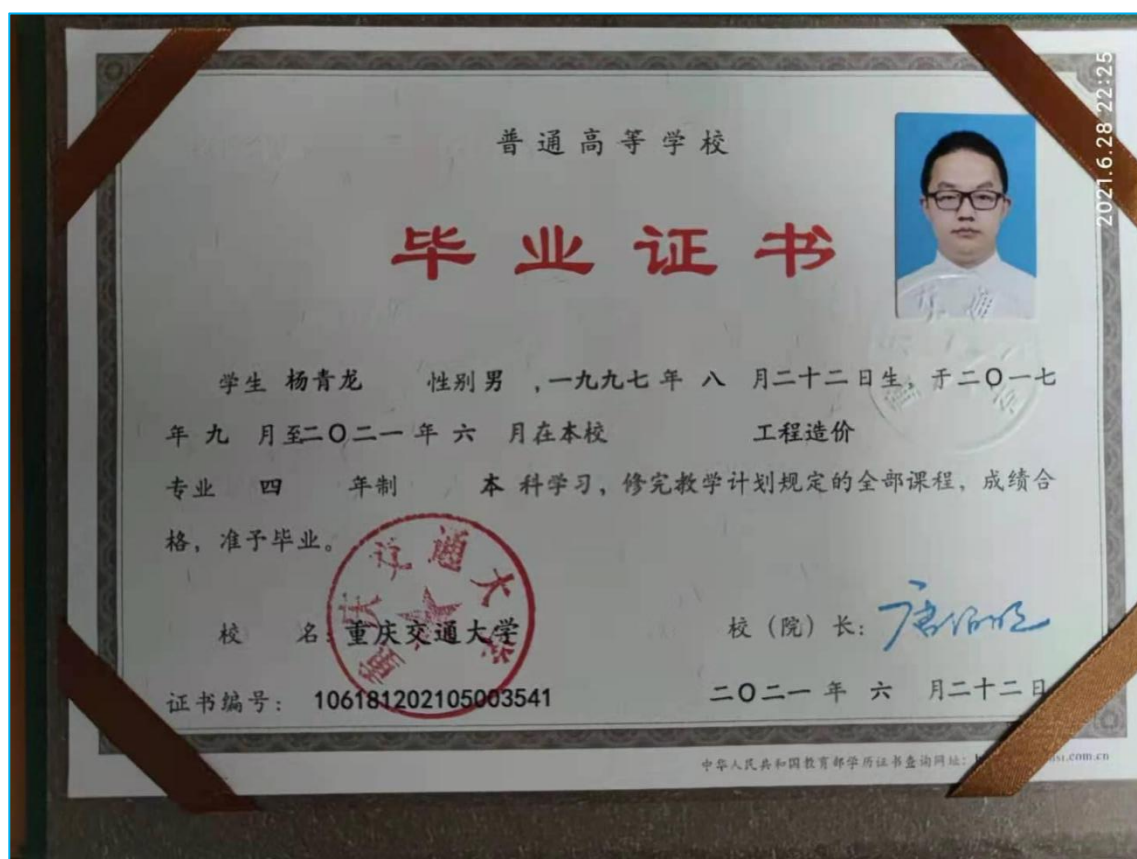 2021.6.28 22:25
普通高等学校
毕业证书
学生 杨青龙 性别 男 ,一九九七 年 八 月二十二日生,于二〇一七
年 九 月至二〇二一 年 六 月在本校 工程造价
专业 四 年制 本 科学习,修完教学计划规定的全部课程,成绩合
格,准予毕业。
重庆交通大学
校 名:重庆交通大学 校(院)长:唐伯明
证书编号: 106181202105003541 二〇二一 年 六 月二十二日
中华人民共和国教育部学历证书查询网址: